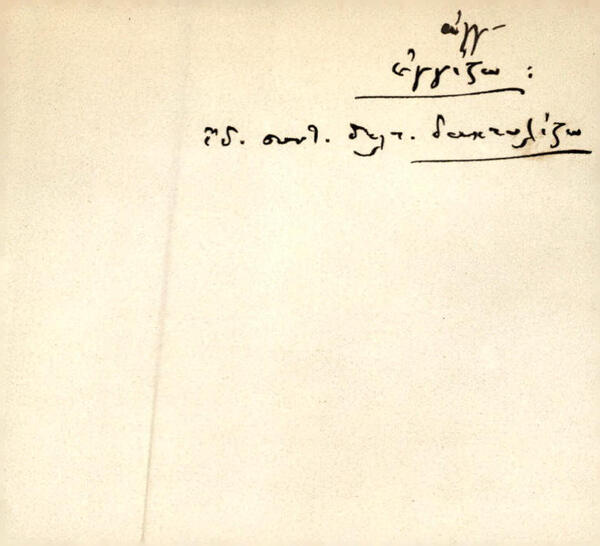 ἀγγ-
ἀγγίζω :
ἰδ. συνθ. δελτ. δακτυλίζω